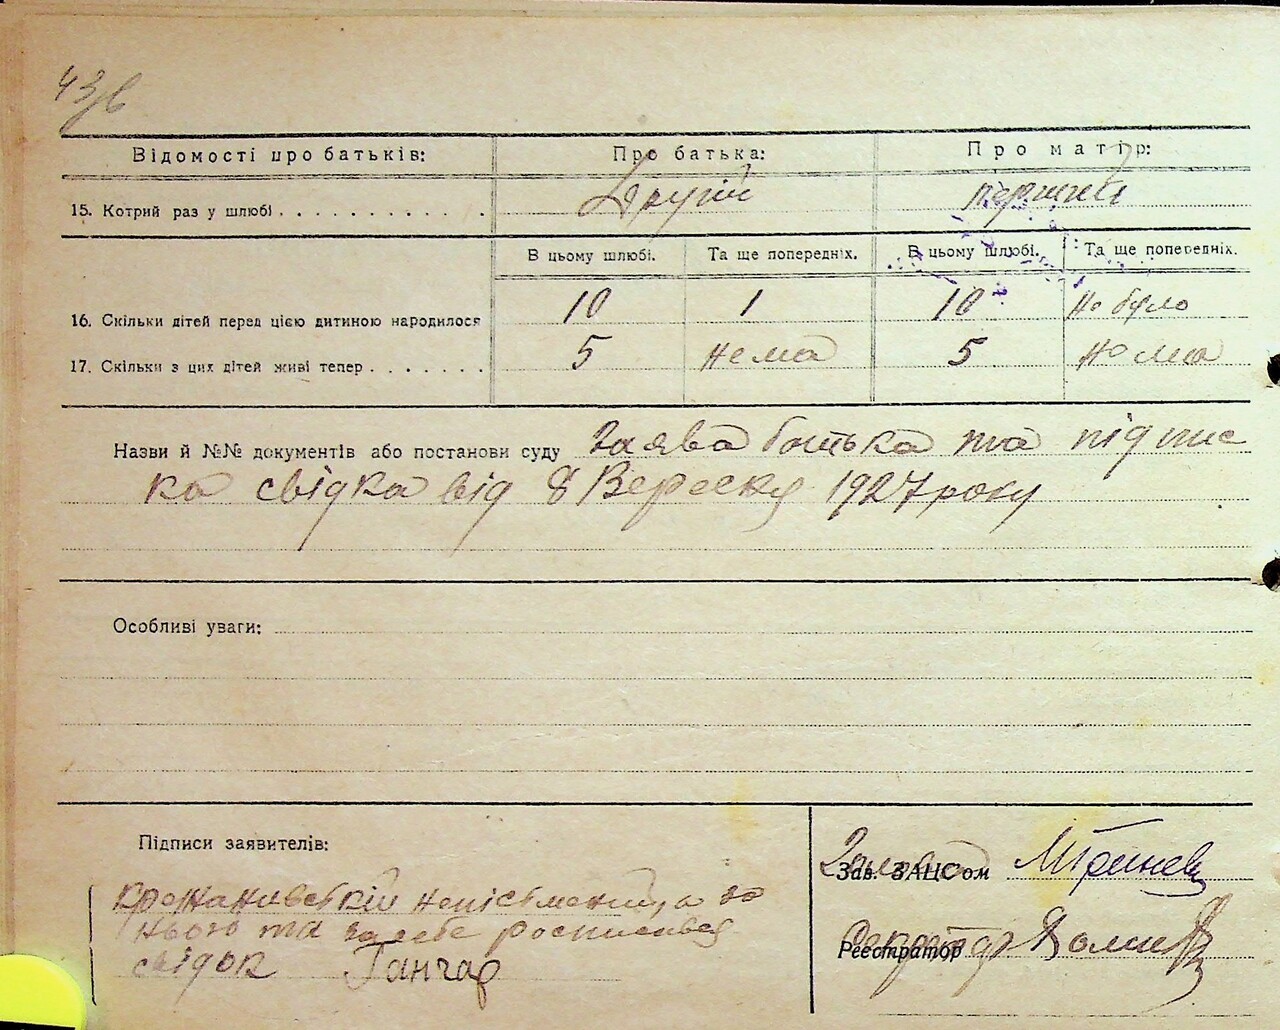 43в
Відомості про батьків: Про батька: Про матір:
15. Котрий раз у шлюбі Другий перший
В цьому шлюбі. Та ще попередніх. В цьому шлюбі. Та ще попередніх.
16. Скільки дітей перед цією дитиною народилося 10 1 10 не було
17. Скільки з цих дітей живі тепер 5 нема 5 нема
Назви й №№ документів або постанови суду Заява батька та підпис
ка свідка від 8 Вересня 1927 року
Особливі уваги:
Підписи заявителів:
Зав. ЗАЦСом
неписьмений, а за
нього та за себе росписався
свідок Ганчар
Реєстратор Секретар